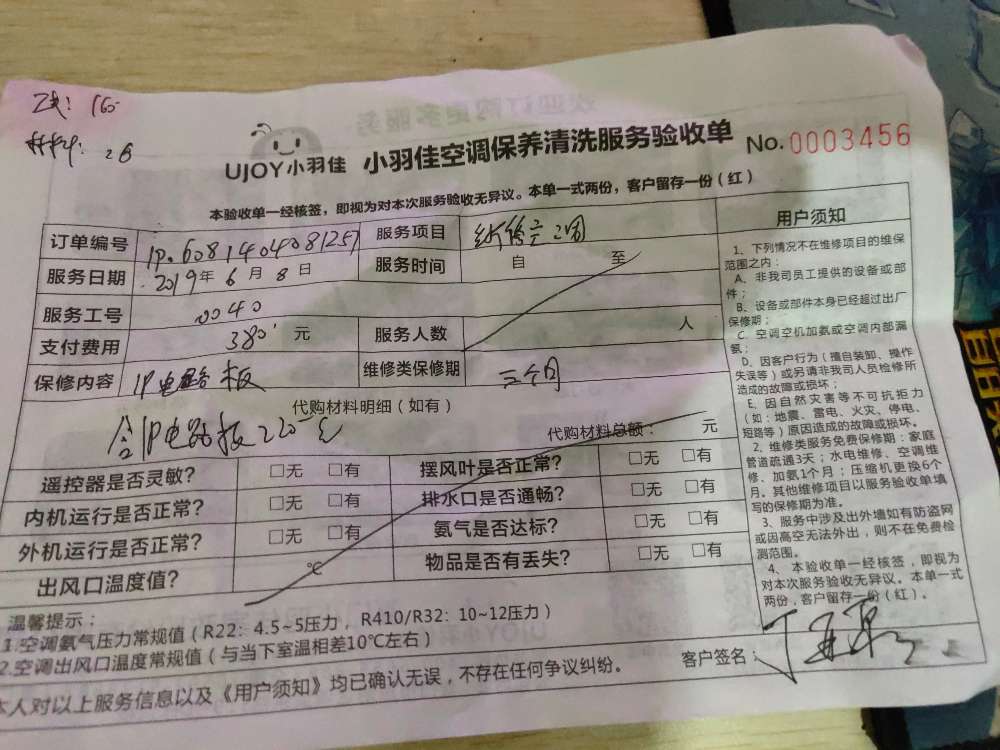 160
材料: 28
UJOY小羽佳 小羽佳空调保养清洗服务验收单 No.0003456
本验收单一经核签，即视为对本次服务验收无异议。本单一式两份，客户留存一份（红）
订单编号 服务项目
服务日期 2019年6月8日 服务时间 自 至
服务工号 0040
支付费用 380 元 服务人数 人
保修内容 IP电路板 维修类保修期 三个月
代购材料明细（如有）
IP电路板220元 代购材料总额： 元
遥控器是否灵敏？ □无 □有 摆风叶是否正常？ □无 □有
内机运行是否正常？ □无 □有 排水口是否通畅？ □无 □有
外机运行是否正常？ □无 □有 氨气是否达标？ □无 □有
出风口温度值？ ℃ 物品是否有丢失？ □无 □有
温馨提示：
1.空调氨气压力常规值（R22：4.5~5压力，R410/R32：10~12压力）
2.空调出风口温度常规值（与当下室温相差10℃左右）
本人对以上服务信息以及《用户须知》均已确认无误，不存在任何争议纠纷。
客户签名：
用户须知
1、下列情况不在维修项目的维保
范围之内：
A、非我司员工提供的设备或部
件；
B、设备或部件本身已经超过出厂
保修期；
C、空调空机加氨或空调内部漏
氨；
D、因客户行为（擅自装卸、操作
失误等）或另请非我司人员检修所
造成的故障或损坏；
E、因自然灾害等不可抗拒力
（如：地震、雷电、火灾、停电、
短路等）原因造成的故障或损坏。
2、维修类服务免费保修期：家庭
管道疏通3天；水电维修、空调维
修、加氨1个月；压缩机更换6个
月。其他维修项目以服务验收单填
写的保修期为准。
3、服务中涉及出外墙如有防盗网
或因高空无法外出，则不在免费检
测范围。
4、本验收单一经核签，即视为
对本次服务验收无异议。本单一式
两份，客户留存一份（红）。